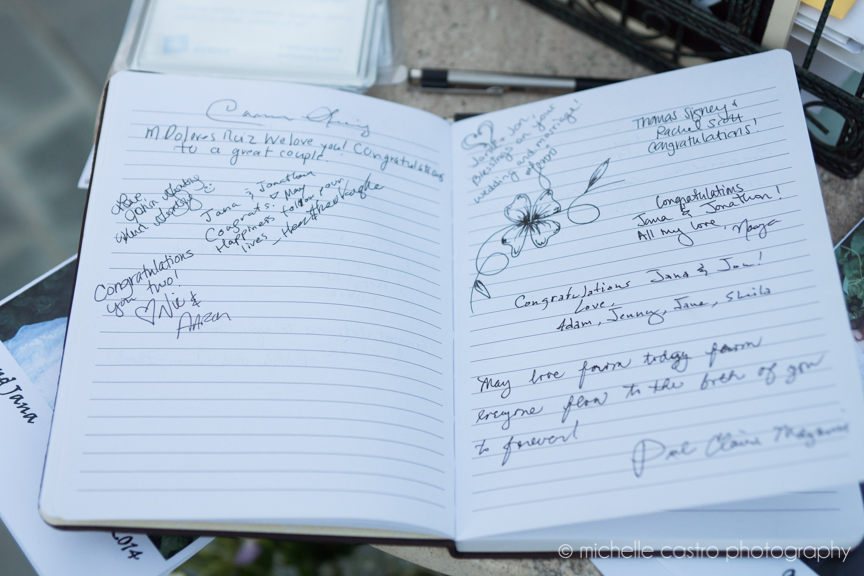 M Dolores Ruiz We love you! Congratulations
to a great couple.
Jana & Jonathan
Congrats! ♡ May
Happiness follow your
lives
Congratulations
you two!
♡ Nic &
Jana & Jon.
Blessings on your
wedding and marriage!
Thomas Signey &
Rachel Scott
Congratulations!
Congratulations
Jana & Jonathan!
All my love,
Congratulations Jana & Jon!
Love,
Adam, Jenny, Jane, Sheila
May love from today from
everyone flow to the both of you
to forever!
Claire
nd Jana
2014
© michelle castro photography